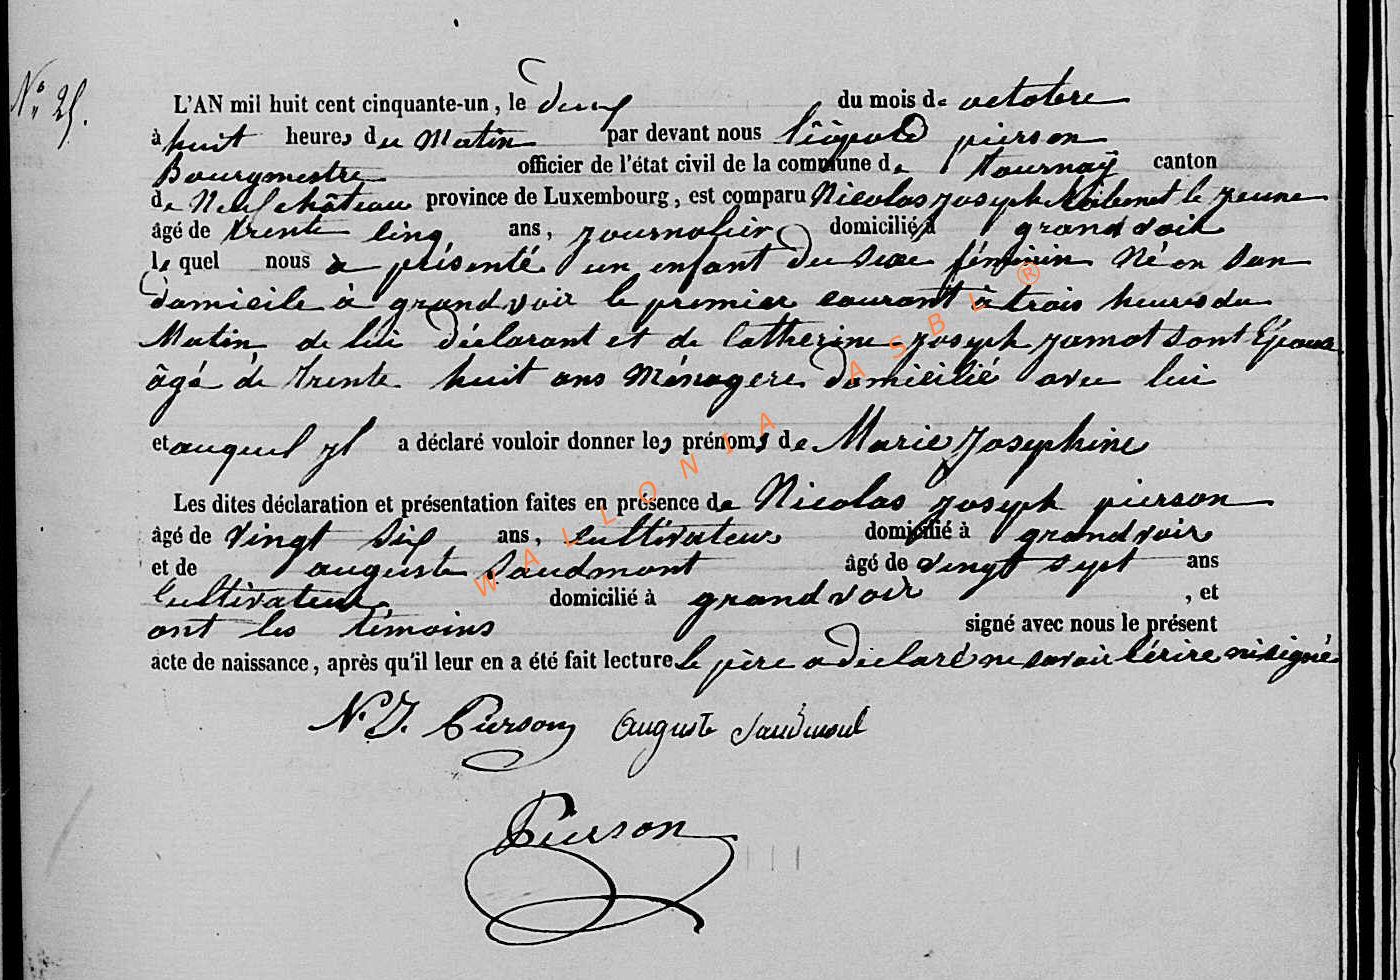 N° 25.
L'AN mil huit cent cinquante-un, le deux du mois de octobre
à huit heures du Matin par devant nous léopold pierson
Bourgmestre officier de l'état civil de la commune de Tournaÿ canton
de Neufchâteau province de Luxembourg, est comparu Nicolas joseph le jeune
âgé de trente cinq ans, journalier domicilié à grandvoir
lequel nous a présenté un enfant du sexe féminin Né en son
domicile à grandvoir le premier courant à trois heures du
Matin de lui déclarant et de Catherine joseph jamot sont Epouse
âgé de trente huit ans Ménagere domicilié avec lui
et auquel jl a déclaré vouloir donner les prénoms de Marie Josephine
Les dites déclaration et présentation faites en présence de Nicolas joseph pierson
âgé de vingt six ans, cultivateur domicilié à grandvoir
et de auguste Saudmont âgé de vingt sept ans
Cultivateur domicilié à grandvoir, et
ont les témoins signé avec nous le présent
acte de naissance, après qu'il leur en a été fait lecture le père a déclaré ne savoir lécrire ni signé
N. J. Pierson Auguste
Pierson
WALLONIA ASBL ®